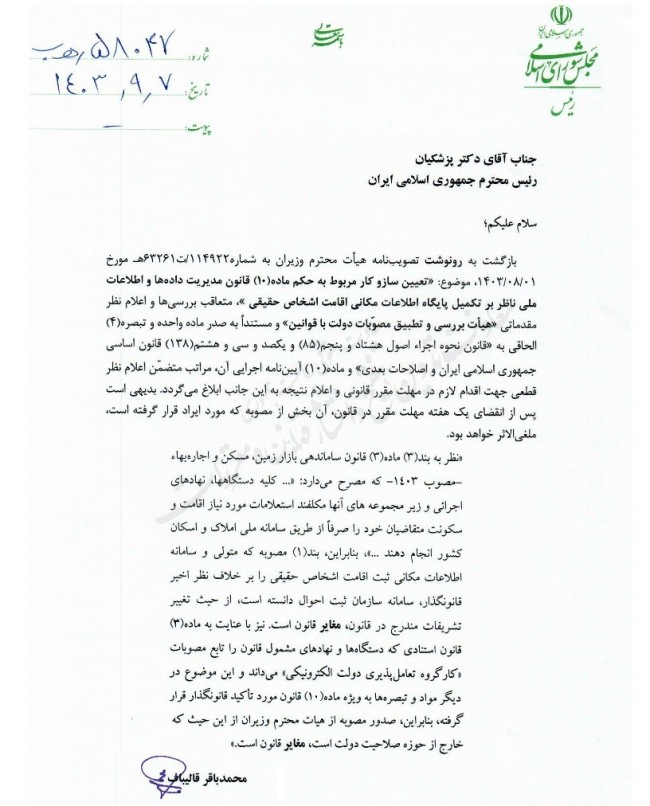 جمهوری اسلامی ایران
مجلس شورای اسلامی
رئیس
باسمه تعالی
شماره: ۵۸۰۴۷
تاریخ: ۱۴۰۳،۹،۷
پیوست: –
جناب آقای دکتر پزشکیان
رئیس محترم جمهوری اسلامی ایران
سلام علیکم؛
بازگشت به رونوشت تصویب‌نامه هیأت محترم وزیران به شماره۱۱۴۹۲۲/ت۶۳۲۶۱هـ مورخ
۱۴۰۳/۰۸/۰۱، موضوع: «تعیین سازو کار مربوط به حکم ماده(۱۰) قانون مدیریت داده‌ها و اطلاعات
ملی ناظر بر تکمیل پایگاه اطلاعات مکانی اقامت اشخاص حقیقی »، متعاقب بررسی‌ها و اعلام نظر
مقدماتی «هیأت بررسی و تطبیق مصوّبات دولت با قوانین» و مستنداً به صدر ماده واحده و تبصره(۴)
الحاقی به «قانون نحوه اجراء اصول هشتاد و پنجم(۸۵) و یکصد و سی و هشتم(۱۳۸) قانون اساسی
جمهوری اسلامی ایران و اصلاحات بعدی» و ماده(۱۰) آیین‌نامه اجرایی آن، مراتب متضمّن اعلام نظر
قطعی جهت اقدام لازم در مهلت مقرر قانونی و اعلام نتیجه به این جانب ابلاغ می‌گردد. بدیهی است
پس از انقضای یک هفته مهلت مقرر در قانون، آن بخش از مصوبه که مورد ایراد قرار گرفته است،
ملغی‌الاثر خواهد بود.
«نظر به بند(۳) ماده(۳) قانون ساماندهی بازار زمین، مسکن و اجاره‌بهاء
-مصوب ۱۴۰۳- که مصرح می‌دارد: «... کلیه دستگاهها، نهادهای
اجرائی و زیر مجموعه های آنها مکلفند استعلامات مورد نیاز اقامت و
سکونت متقاضیان خود را صرفاً از طریق سامانه ملی املاک و اسکان
کشور انجام دهند ...»، بنابراین، بند(۱) مصوبه که متولی و سامانه
اطلاعات مکانی ثبت اقامت اشخاص حقیقی را بر خلاف نظر اخیر
قانونگذار، سامانه سازمان ثبت احوال دانسته است، از حیث تغییر
تشریفات مندرج در قانون، مغایر قانون است. نیز با عنایت به ماده(۳)
قانون استنادی که دستگاه‌ها و نهادهای مشمول قانون را تابع مصوبات
«کارگروه تعامل‌پذیری دولت الکترونیکی» می‌داند و این موضوع در
دیگر مواد و تبصره‌ها به ویژه ماده(۱۰) قانون مورد تأکید قانونگذار قرار
گرفته، بنابراین، صدور مصوبه از هیات محترم وزیران از این حیث که
خارج از حوزه صلاحیت دولت است، مغایر قانون است.»
محمدباقر قالیباف